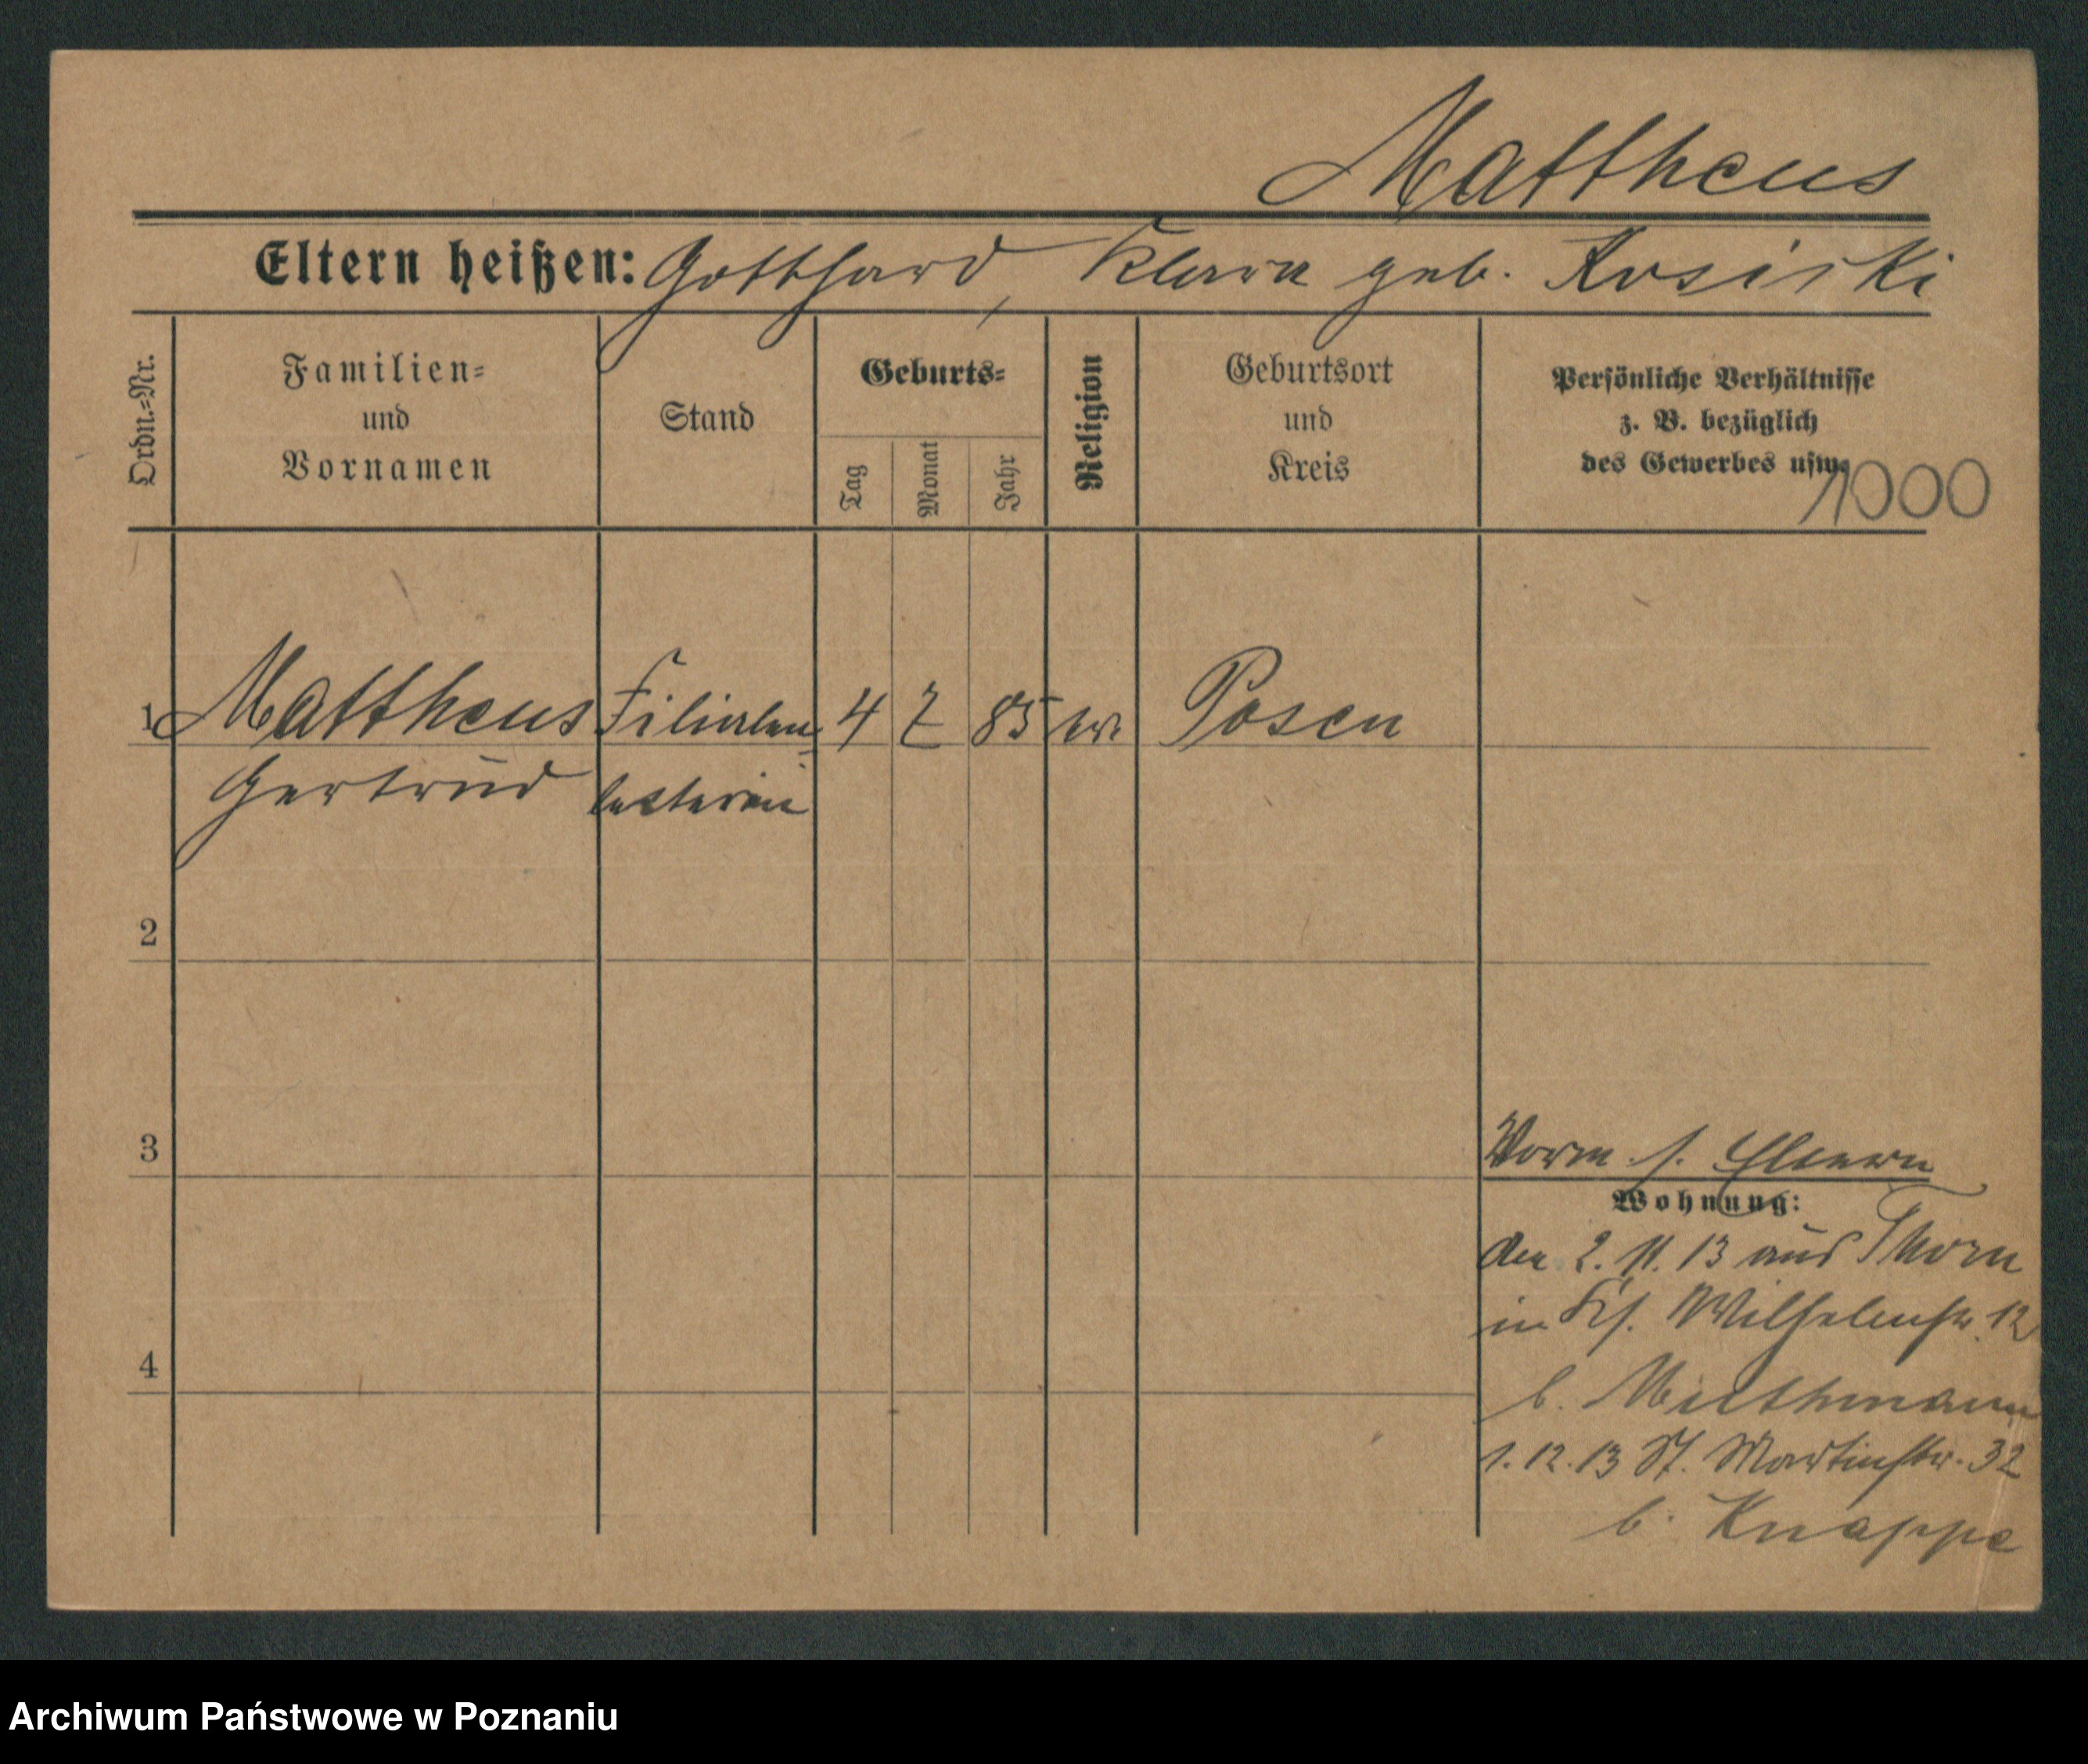 Mattheus
Eltern heißen: Gotthard, Klara geb. Kosicki
Ordn.-Nr.
Familien-
und
Vornamen
Stand
Geburts-
Tag
Monat
Jahr
Religion
Geburtsort
und
Kreis
Persönliche Verhältnisse
z. B. bezüglich
des Gewerbes usw.
1000
1 Mattheus Filialen- 4 7 85 ev. Posen
Gertrud leiterin
2
3
4
Vorm. s. Eltern
Wohnung:
den 2. 11. 13 aus Thorn
in Wilhelmstr. 12
b. Miethmann
1. 12. 13 St. Martinstr. 32
b. Knappe
Archiwum Państwowe w Poznaniu